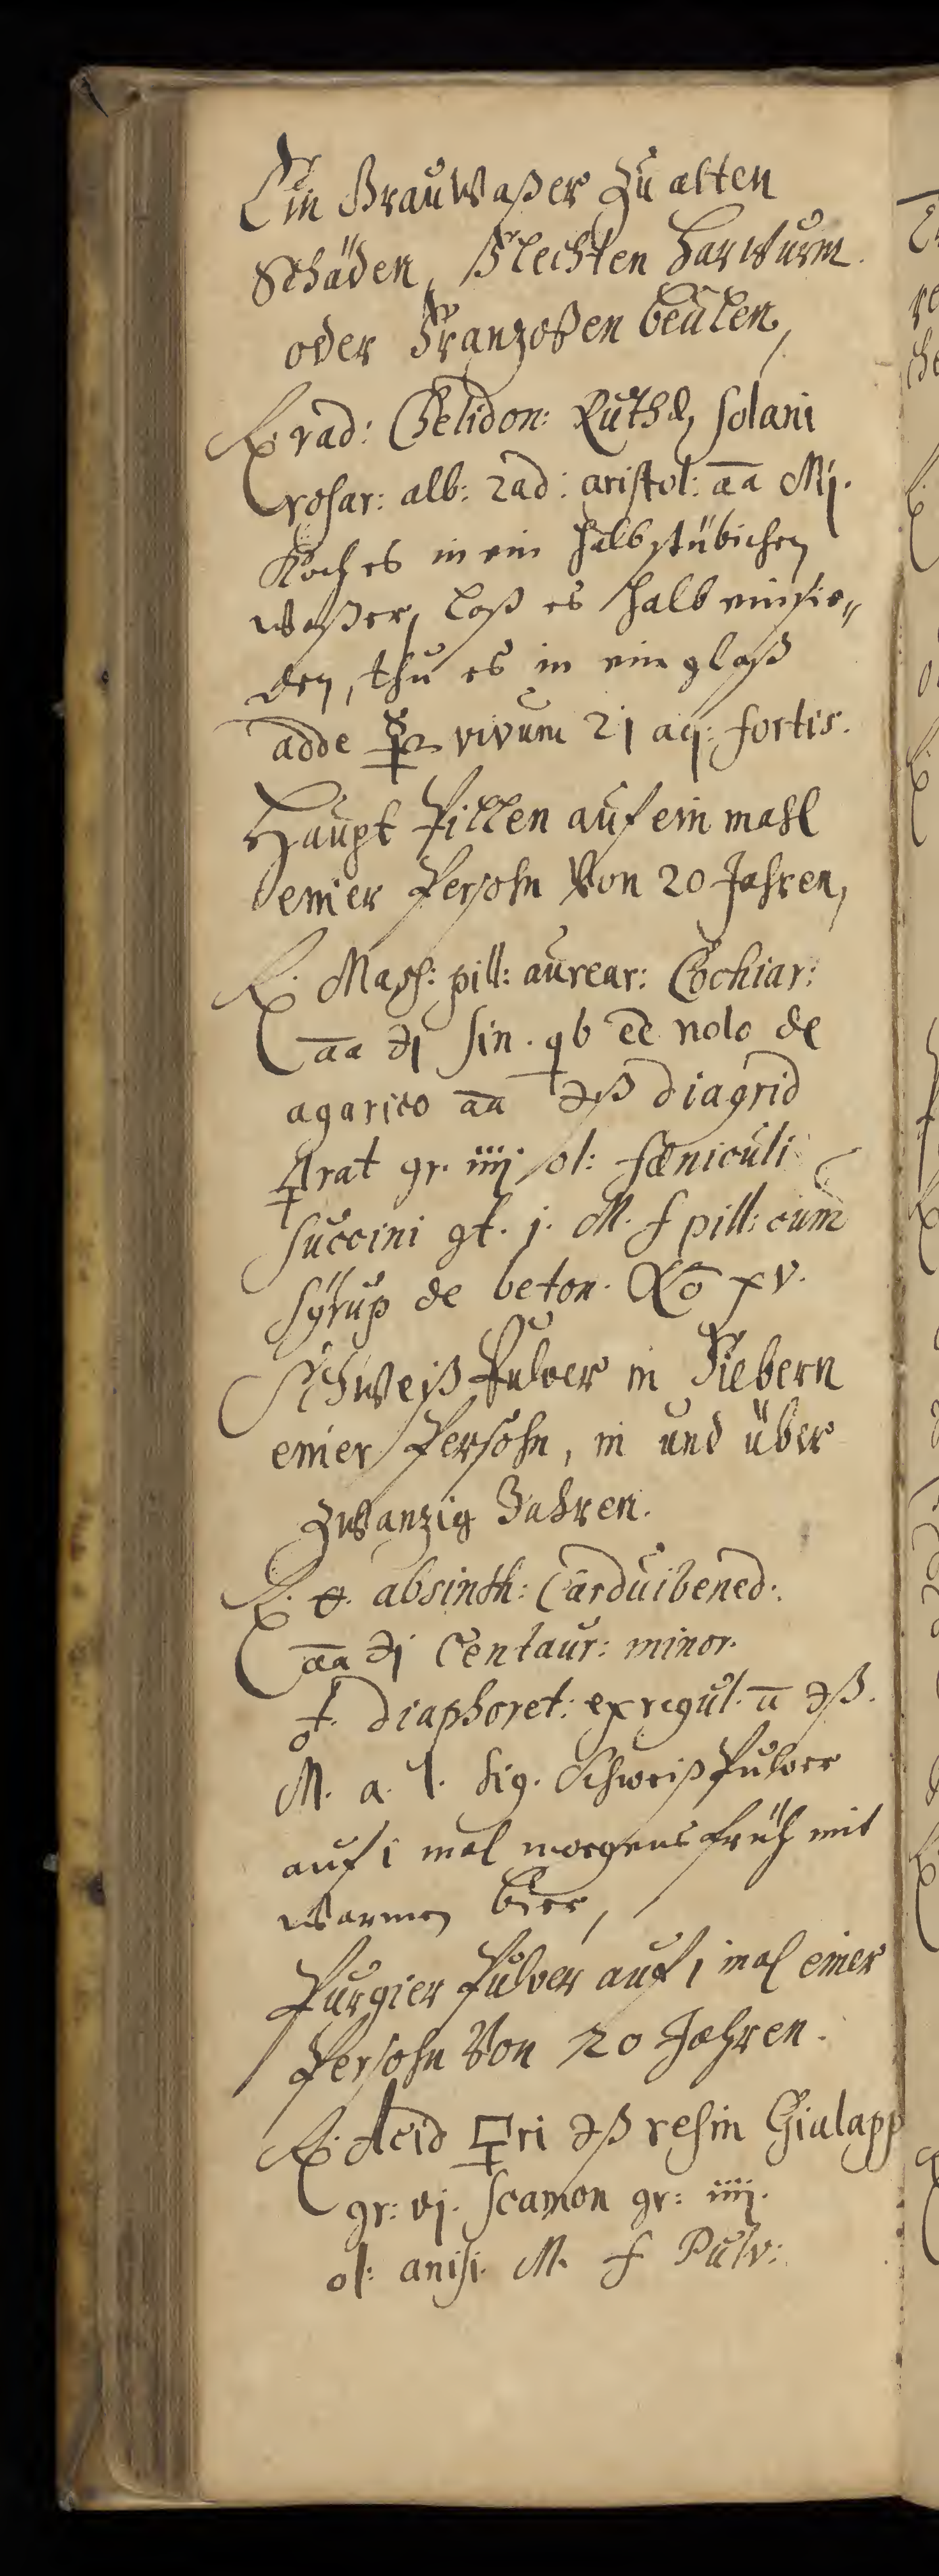 Ein Brauwaßer zu alten
Schäden, Flechten Harwurm
oder Franzoßen beulen,
℞. rad: Chelidon: Ruthæ, solani
rosar: alb: rad: aristol: āā Mj.
Koch es in ein halb stübichen
waßer, laß es halb einsie„
den, thu es in ein glaß
adde ☿ vivum aq: fortis.
Haupt Pillen auf ein mahl
einer Persohn Von 20 Jahren,
℞. Mass: pill: aurear: Cochiar:
āā ℈j sin. qb nolo de
agarico āā ℈ß diagrid
rat gr. iiij ol: fœniculi
succini gt. j. M. f pill: cum̄
syrup de beton. No xv.
Schweiß Pulver in Fiebern
einer Persohn, in und über
zwanzig Jahren.
℞. absinth: Cardui bened:
āā ℈j Centaur: minor.
♁. diaphoret: ex regul. ā ℈ß.
M. a. l. sig. Schweiß Pulver
auf 1 mal morgens früh mit
warmen bier,
Purgier Pulver auf 1 mal einer
Persohn Von 20 Jahren.
℞. Acid 🜿ri ℈ß resin Gialapp
gr: vj. scamon gr: iiij.
ol: anisi. M. f Pulv: